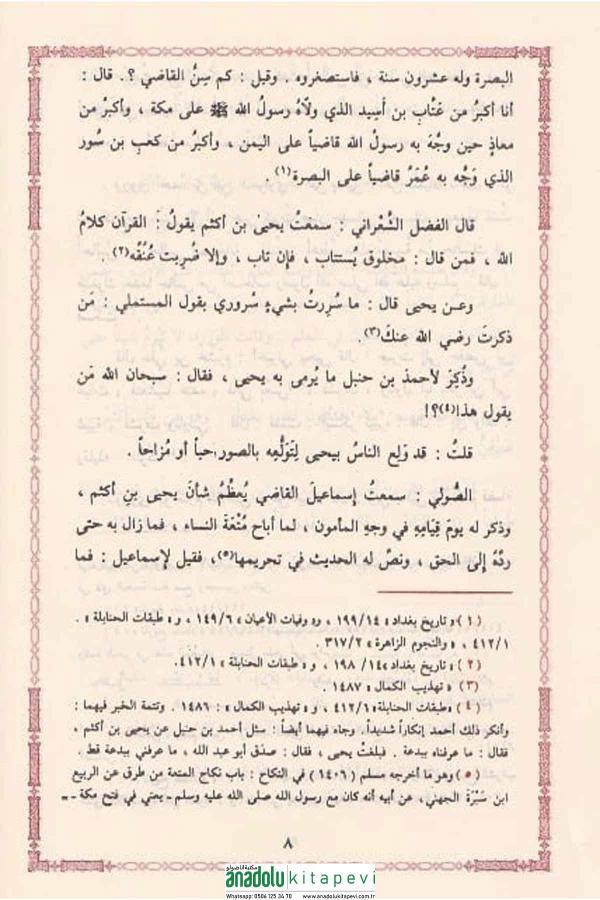 البصرة وله عشرون سنة ، فاستصغروه . وقيل : كم سِنُّ القاضي ؟. قال :
أنا أكبرُ من عَتَّابِ بن أَسِيد الذي ولاَّهُ رسولُ الله ﷺ على مكة ، وأكبرُ من
معاذٍ حين وجَّهَ به رسولُ الله قاضياً على اليمن ، وأكبرُ من كعبِ بن سُور
الذي وَجَّه به عُمَرُ قاضياً على البصرة(١) .
قال الفضل الشَّعْراني : سمعتُ يحيىٰ بن أكثم يقولُ : القرآن كلامُ
الله ، فمن قال : مخلوق يُستتاب ، فإن تاب ، وإلا ضُرِبت عُنُقُه(٢) .
وعن يحيى قال : ما سُرِرتُ بشيءٍ سُروري بقول المستملي : مَن
ذكرتَ رضي الله عنكَ(٣).
وذُكِرَ لأحمدَ بن حنبل ما يُرمى به يحيى ، فقال : سبحان الله مَن
يقول هذا(٤)؟!
قلتُ : قد وَلِع الناسُ بيحيى لِتَوَلُّعِه بالصور حباً أو مُزاحاً .
الصُّولي : سمعتُ إسماعيلَ القاضي يُعظِّمُ شأنَ يحيى بنِ أكثم ،
وذكر له يومَ قِيَامِهِ في وجهِ المأمون ، لما أباح مُتْعَةَ النساء ، فما زال به حتى
ردَّهُ إلى الحق ، ونصَّ له الحديث في تحريمها(٥)، فقيل لإسماعيل : فما
(١) « تاريخ بغداد » ١٩٩/١٤ ، و« وفيات الأعيان » ١٤٩/٦ ، و « طبقات الحنابلة » .
٤١٢/١ ، والنجوم الزاهرة » ٣١٧/٢ .
(٢) « تاريخ بغداد » ١٩٨/١٤ ، و « طبقات الحنابلة » ٤١٢/١.
(٣) « تهذيب الكمال » ١٤٨٧ .
(٤) « طبقات الحنابلة » ٤١٢/١ ، و « تهذيب الكمال » : ١٤٨٦ . وتتمة الخبر فيهما :
وأنكر ذلك أحمد إنكاراً شديداً. وجاء فيهما أيضاً : سئل أحمد بن حنبل عن يحيى بن أكثم ،
فقال : ما عرفناه ببدعة . فبلغتْ يحيى ، فقال : صدَق أبو عبد الله ، ما عرفني ببدعة قط .
(٥) وهو ما أخرجه مسلم (١٤٠٦) في النكاح : باب نكاح المتعة من طرق عن الربيع
ابن سَبْرَةَ الجهني، عن أبيه أنه كان مع رسول الله صلى الله عليه وسلم ـ يعني في فتح مكة ــ
٨
anadolu kitapevi
Whatsapp: 0506 125 34 70 www.anadolukitapevi.com.tr